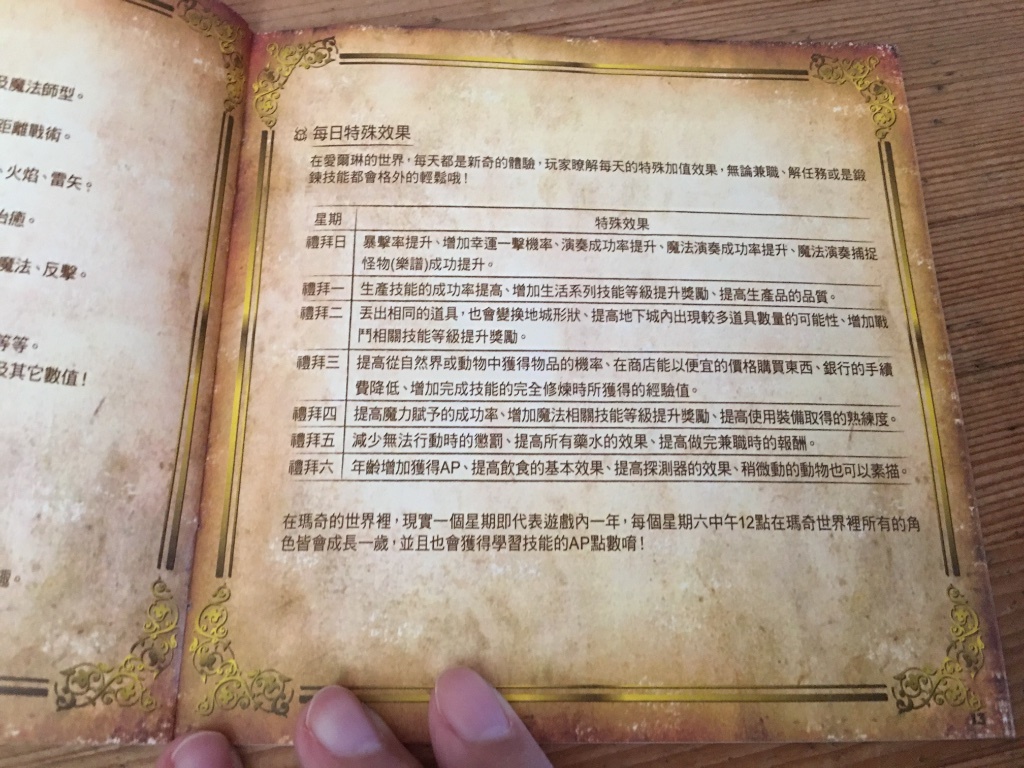 及魔法師型。
距離戰術。
、火焰、雷矢。
治癒。
魔法、反擊。
等等。
及其它數值！
每日特殊效果
在愛爾琳的世界，每天都是新奇的體驗，玩家瞭解每天的特殊加值效果，無論兼職、解任務或是鍛
鍊技能都會格外的輕鬆哦！
星期 特殊效果
禮拜日 暴擊率提升、增加幸運一擊機率、演奏成功率提升、魔法演奏成功率提升、魔法演奏捕捉
怪物(樂譜)成功提升。
禮拜一 生產技能的成功率提高、增加生活系列技能等級提升獎勵、提高生產品的品質。
禮拜二 丟出相同的道具，也會變換地城形狀、提高地下城內出現較多道具數量的可能性、增加戰
鬥相關技能等級提升獎勵。
禮拜三 提高從自然界或動物中獲得物品的機率、在商店能以便宜的價格購買東西、銀行的手續
費降低、增加完成技能的完全修煉時所獲得的經驗值。
禮拜四 提高魔力賦予的成功率、增加魔法相關技能等級提升獎勵、提高使用裝備取得的熟練度。
禮拜五 減少無法行動時的懲罰、提高所有藥水的效果、提高做完兼職時的報酬。
禮拜六 年齡增加獲得AP、提高飲食的基本效果、提高探測器的效果、稍微動的動物也可以素描。
在瑪奇的世界裡，現實一個星期即代表遊戲內一年，每個星期六中午12點在瑪奇世界裡所有的角
色皆會成長一歲，並且也會獲得學習技能的AP點數唷！
13